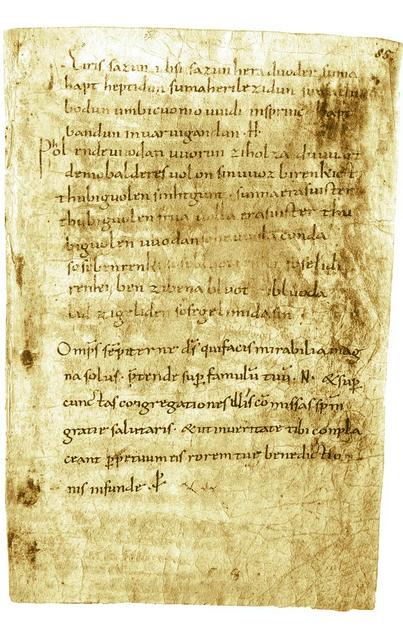 85
Eiris sazun idisi sazun hera duoder suma
hapt heptidun sumaherilezidun sumaclu
bodun umbicuonio uuidi insprinc hapt
bandun inuar uigandun · H ·
Phol ende uuodan uuorun ziholza du uuart
demobalderes uolon sinuuoz birenkict
thubiguolen sinhtgunt · sunnaerasuister
thubiguolen friia uolla erasuister thu
biguolen uuodan uuolaconda
sosebenrenki soselidi
renki, ben zibena bluot zibluoda
lid zigeliden sosegelimidasin
Omps sēpiterne ds̄ quifacis mirabilia mag
na solus · p̄tende sup̄ famulū tuū · N · & sup̄
cunctas congregationes illis cōmissas sp̄m
gratie salutaris · &utinueritate tibi conpla
ceant p̄petuum eis rorem tue benedictio
nis infunde · p̄